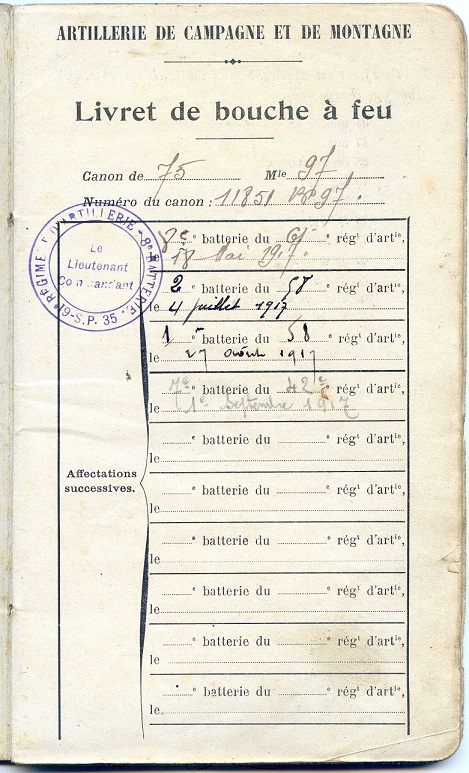 ARTILLERIE DE CAMPAGNE ET DE MONTAGNE
Livret de bouche à feu
Canon de 75 Mle 97
Numéro du canon : 11851
Le
Lieutenant
Commandant
8e BATTERIE
S.P. 35
Affectations
successives.
8e batterie du régt d'artie,
18 Mai 1917
2 batterie du 58 régt d'artie,
le 4 juillet 1917
1 batterie du 58 régt d'artie,
le 27 août 1917
7e batterie du 42e régt d'artie,
le 1e Septembre 1917
e batterie du e régt d'artie,
le
e batterie du e régt d'artie,
le
e batterie du e régt d'artie,
le
e batterie du e régt d'artie,
le
e batterie du e régt d'artie,
le
e batterie du e régt d'artie,
le